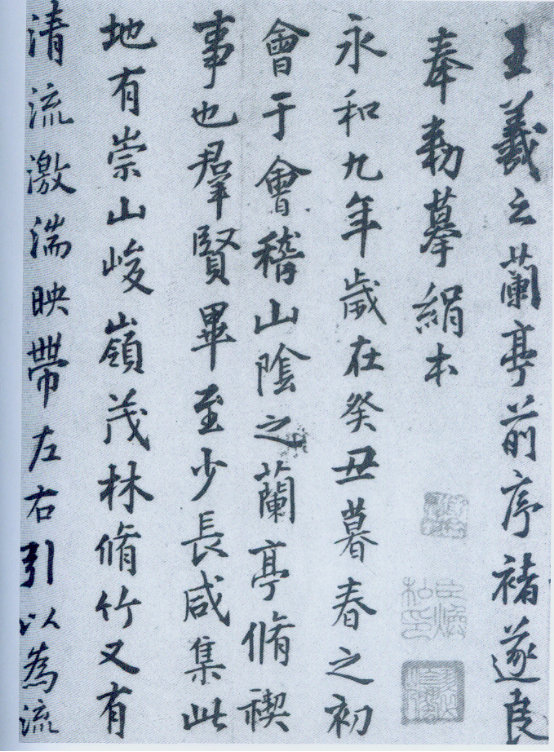 王羲之蘭亭前序褚遂良
奉勅摹絹本
永和九年歲在癸丑暮春之初
會于會稽山陰之蘭亭脩禊
事也羣賢畢至少長咸集此
地有崇山峻嶺茂林脩竹又有
清流激湍映帶左右引以為流